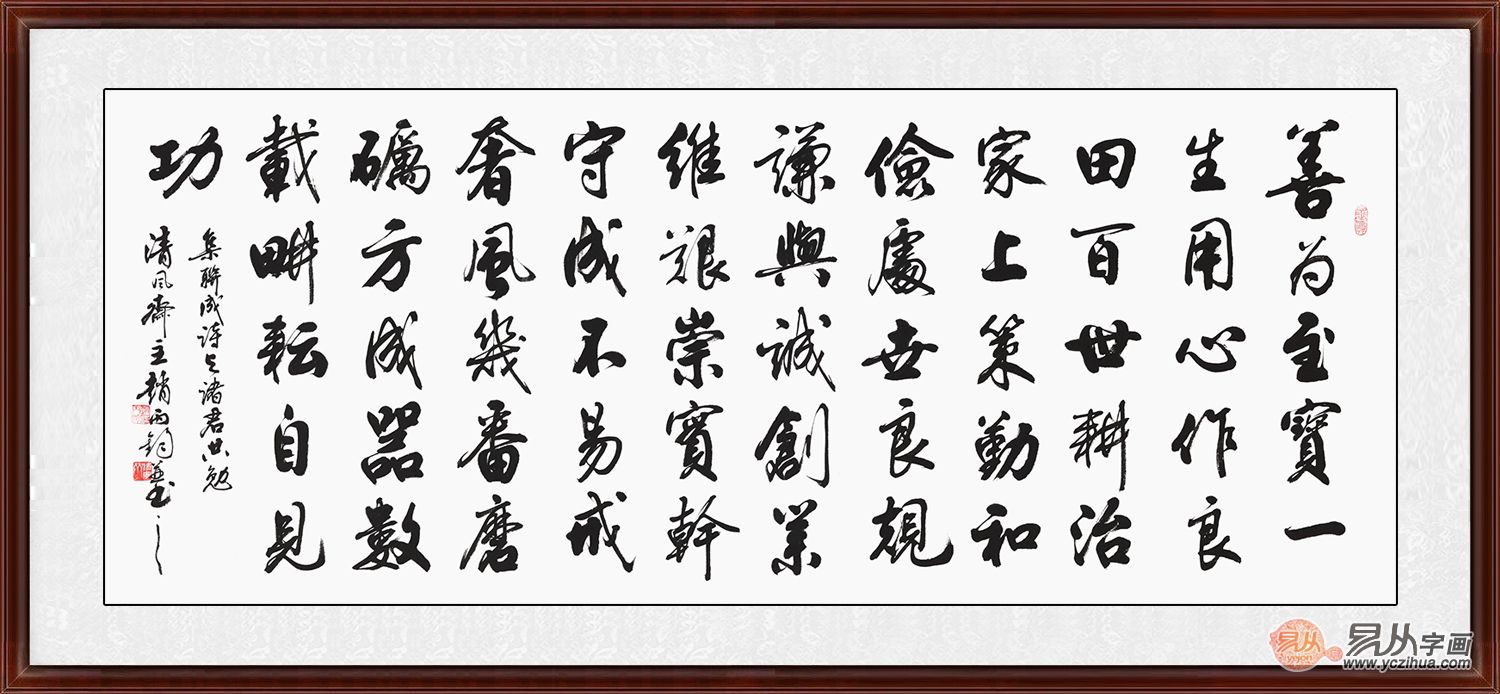 善为至寶一
生用心作良
田百世耕治
家上策勤和
儉處世良規
謙與誠創業
維艱崇實幹
守成不易戒
奢風幾番磨
礪方成器數
載畊耘自見
功
集聯成詩与諸君共勉
清風齋主趙
易从
易从字画
www.yczihua.com